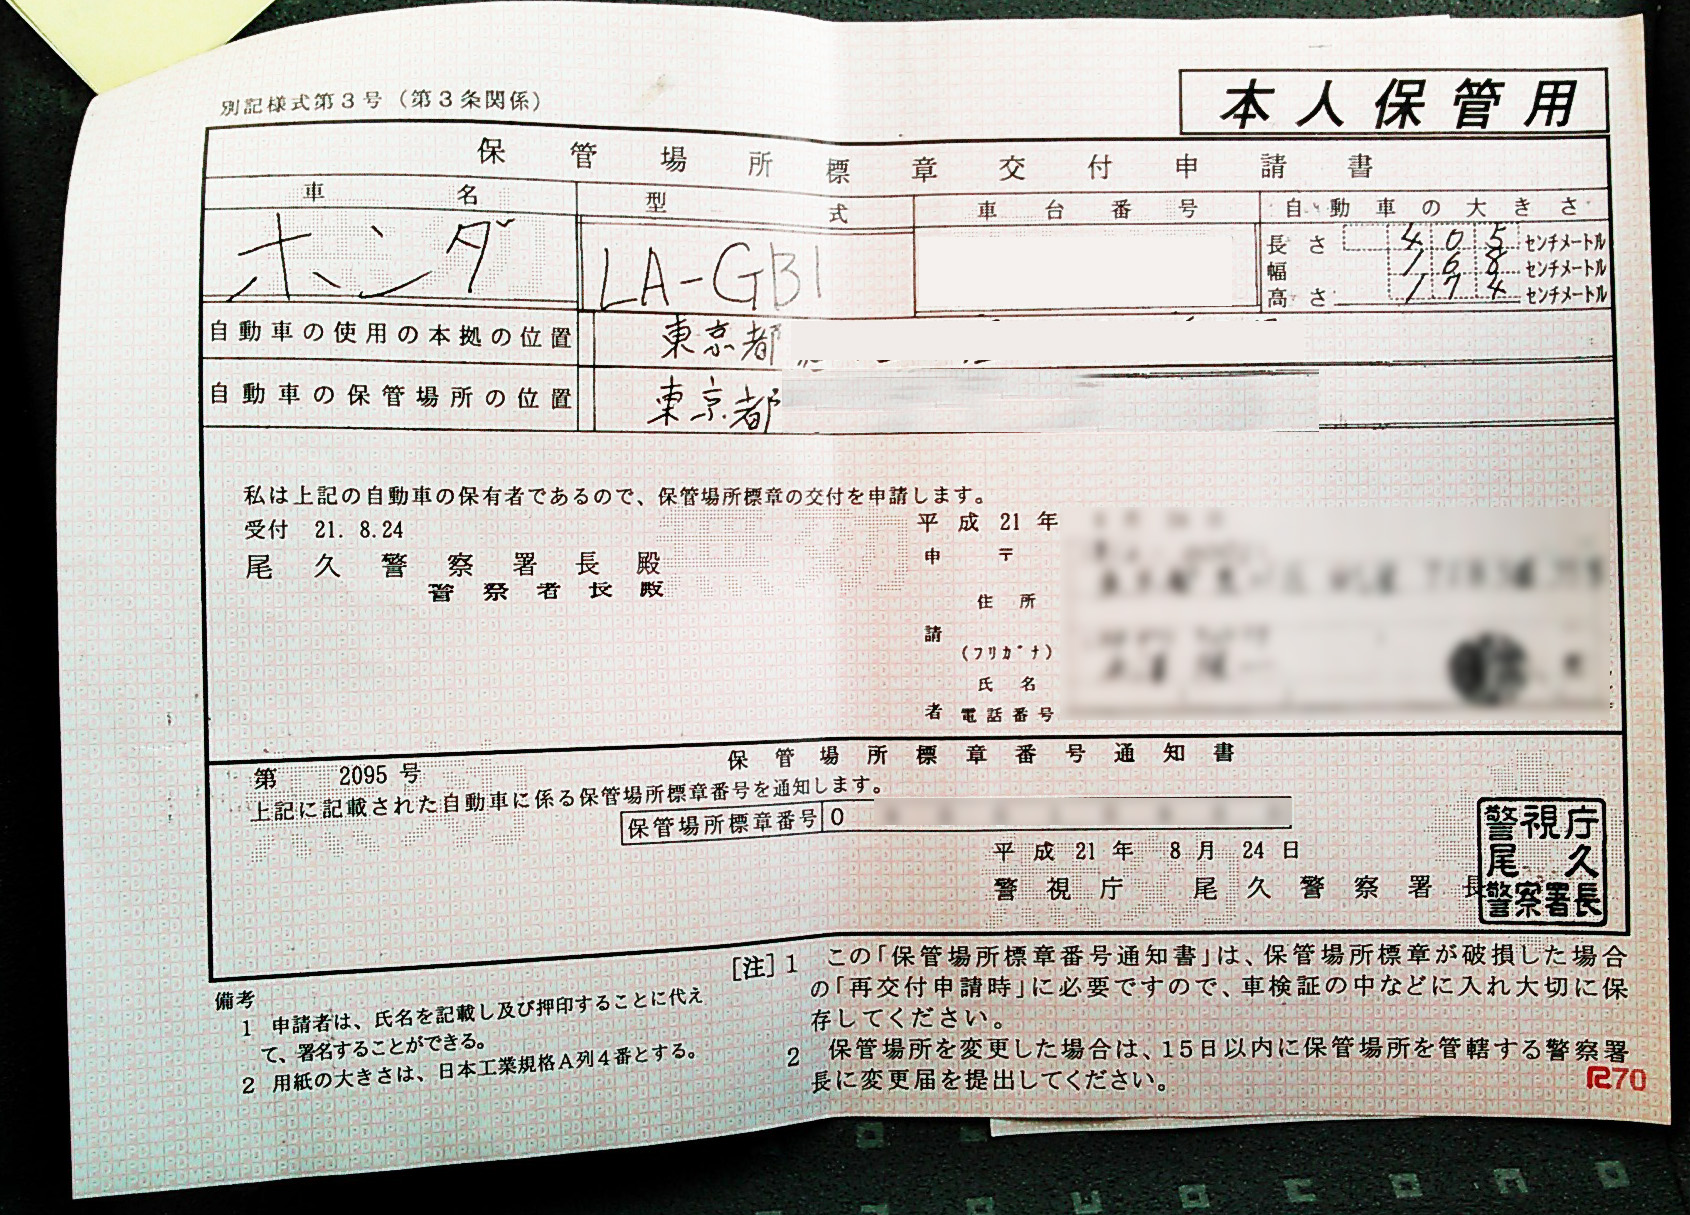 別記様式第3号（第3条関係）
本人保管用
保管場所標章交付申請書
車名 型式 車台番号 自動車の大きさ
ホンダ LA-GB1
長さ 405 センチメートル
幅 168 センチメートル
高さ 174 センチメートル
自動車の使用の本拠の位置 東京都
自動車の保管場所の位置 東京都
私は上記の自動車の保有者であるので、保管場所標章の交付を申請します。
受付 21. 8.24
平成21年
尾久警察署長殿
警察署長殿
申請者
〒
住所
(フリガナ)
氏名
電話番号
保管場所標章番号通知書
第 2095 号
上記に記載された自動車に係る保管場所標章番号を通知します。
保管場所標章番号 0
平成21年 8月 24日
警視庁 尾久警察署長
警視庁
尾久
警察署長
備考
1 申請者は、氏名を記載し及び押印することに代え
て、署名することができる。
2 用紙の大きさは、日本工業規格A列4番とする。
[注] 1 この「保管場所標章番号通知書」は、保管場所標章が破損した場合
の「再交付申請時」に必要ですので、車検証の中などに入れ大切に保
存してください。
2 保管場所を変更した場合は、15日以内に保管場所を管轄する警察署
長に変更届を提出してください。
R70